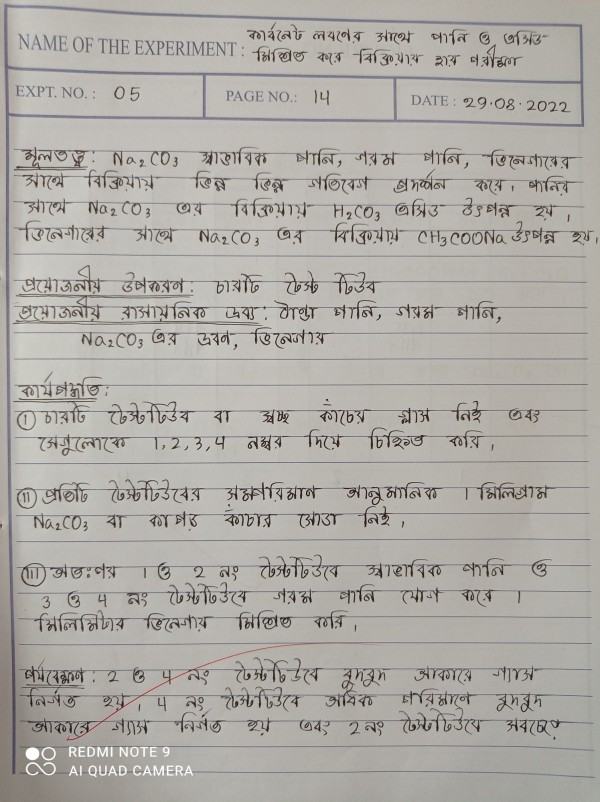 কার্বনেট লবণের সাথে পানি ও এসিড
NAME OF THE EXPERIMENT : মিশ্রিত করে বিক্রিয়ার হার পরীক্ষা
EXPT. NO. : 05 PAGE NO.: 14 DATE : 29.08.2022
মূলতত্ত্ব: Na2CO3 স্বাভাবিক পানি, গরম পানি, ভিনেগারের
সাথে বিক্রিয়ায় ভিন্ন ভিন্ন গতিবেগ প্রদর্শন করে। পানির
সাথে Na2CO3 এর বিক্রিয়ায় H2CO3 এসিড উৎপন্ন হয়।
ভিনেগারের সাথে Na2CO3 এর বিক্রিয়ায় CH3COONa উৎপন্ন হয়।
প্রয়োজনীয় উপকরণ: চারটি টেস্ট টিউব
প্রয়োজনীয় রাসায়নিক দ্রব্য: ঠান্ডা পানি, গরম পানি,
Na2CO3 এর দ্রবণ, ভিনেগার
কার্যপদ্ধতি:
(i) চারটি টেস্টটিউব বা স্বচ্ছ কাঁচের গ্লাস নিই এবং
সেগুলোকে 1,2,3,4 নম্বর দিয়ে চিহ্নিত করি।
(ii) প্রতিটি টেস্টটিউবের সমপরিমাণ আনুমানিক 1 মিলিগ্রাম
Na2CO3 বা কাপড় কাঁচার সোডা নিই।
(iii) অতঃপর 1 ও 2 নং টেস্টটিউবে স্বাভাবিক পানি ও
3 ও 4 নং টেস্টটিউবে গরম পানি যোগ করে 1
মিলিমিটার ভিনেগার মিশ্রিত করি।
পর্যবেক্ষণ: 2 ও 4 নং টেস্টটিউবে বুদবুদ আকারে গ্যাস
নির্গত হয়। 4 নং টেস্টটিউবে অধিক পরিমাণে বুদবুদ
আকারে গ্যাস নির্গত হয় এবং 2নং টেস্টটিউবে সবচেয়ে
REDMI NOTE 9
AI QUAD CAMERA